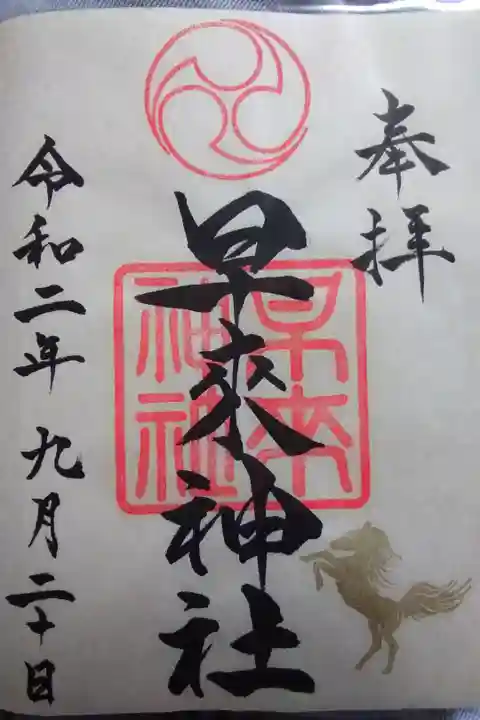 奉拝
早來神社
早来神社
令和二年 九月二十日